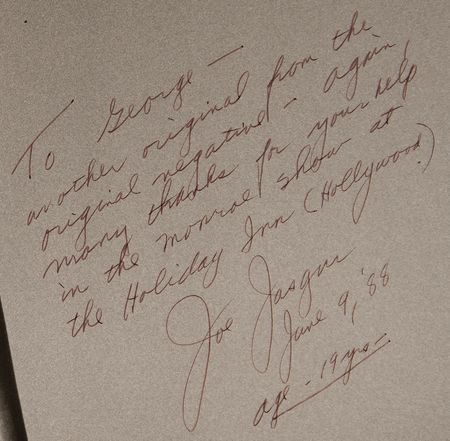 To George —
another original from the
original negative — again,
many thanks for your help
in the monroe show at
the Holiday Inn (Hollywood)
Joe Jasgur
June 9, '88
age - 19 yrs -